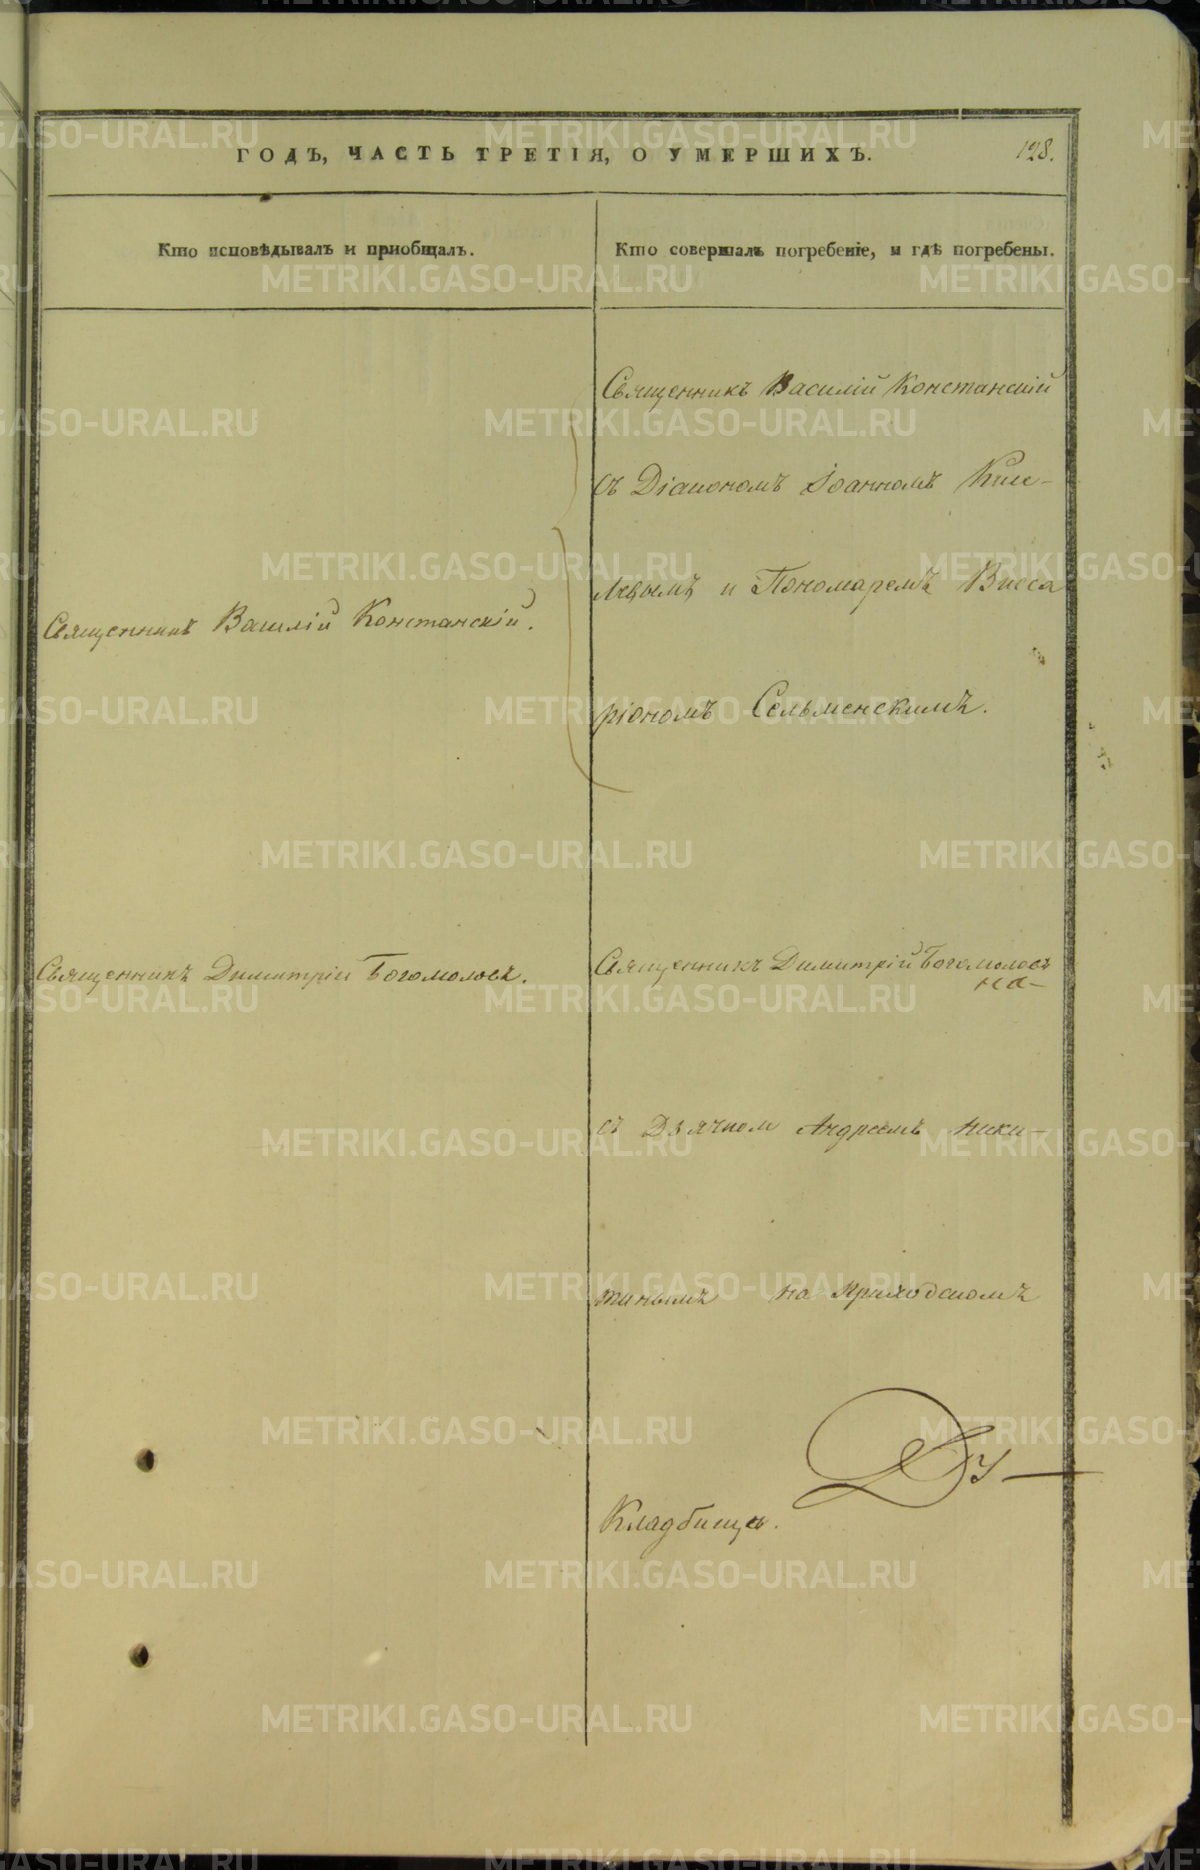 ГОДЪ, ЧАСТЬ ТРЕТІЯ, О УМЕРШИХЪ.
128.
Кто исповѣдывалъ и пріобщалъ.
Кто совершалъ погребеніе, и гдѣ погребены.
Священникъ Василій Констанскій.
Священникъ Василій Констанскій
съ Діакономъ Іоанномъ Кисе-
левымъ и Пономаремъ Висса
ріономъ Сельменскимъ.
Священникъ Димитрій Богомоловъ.
Священникъ Димитрій Богомоловъ
на-
съ Дьячком Андреемъ Ники-
тинымъ на Приходскомъ
Кладбище.
METRIKI.GASO-URAL.RU